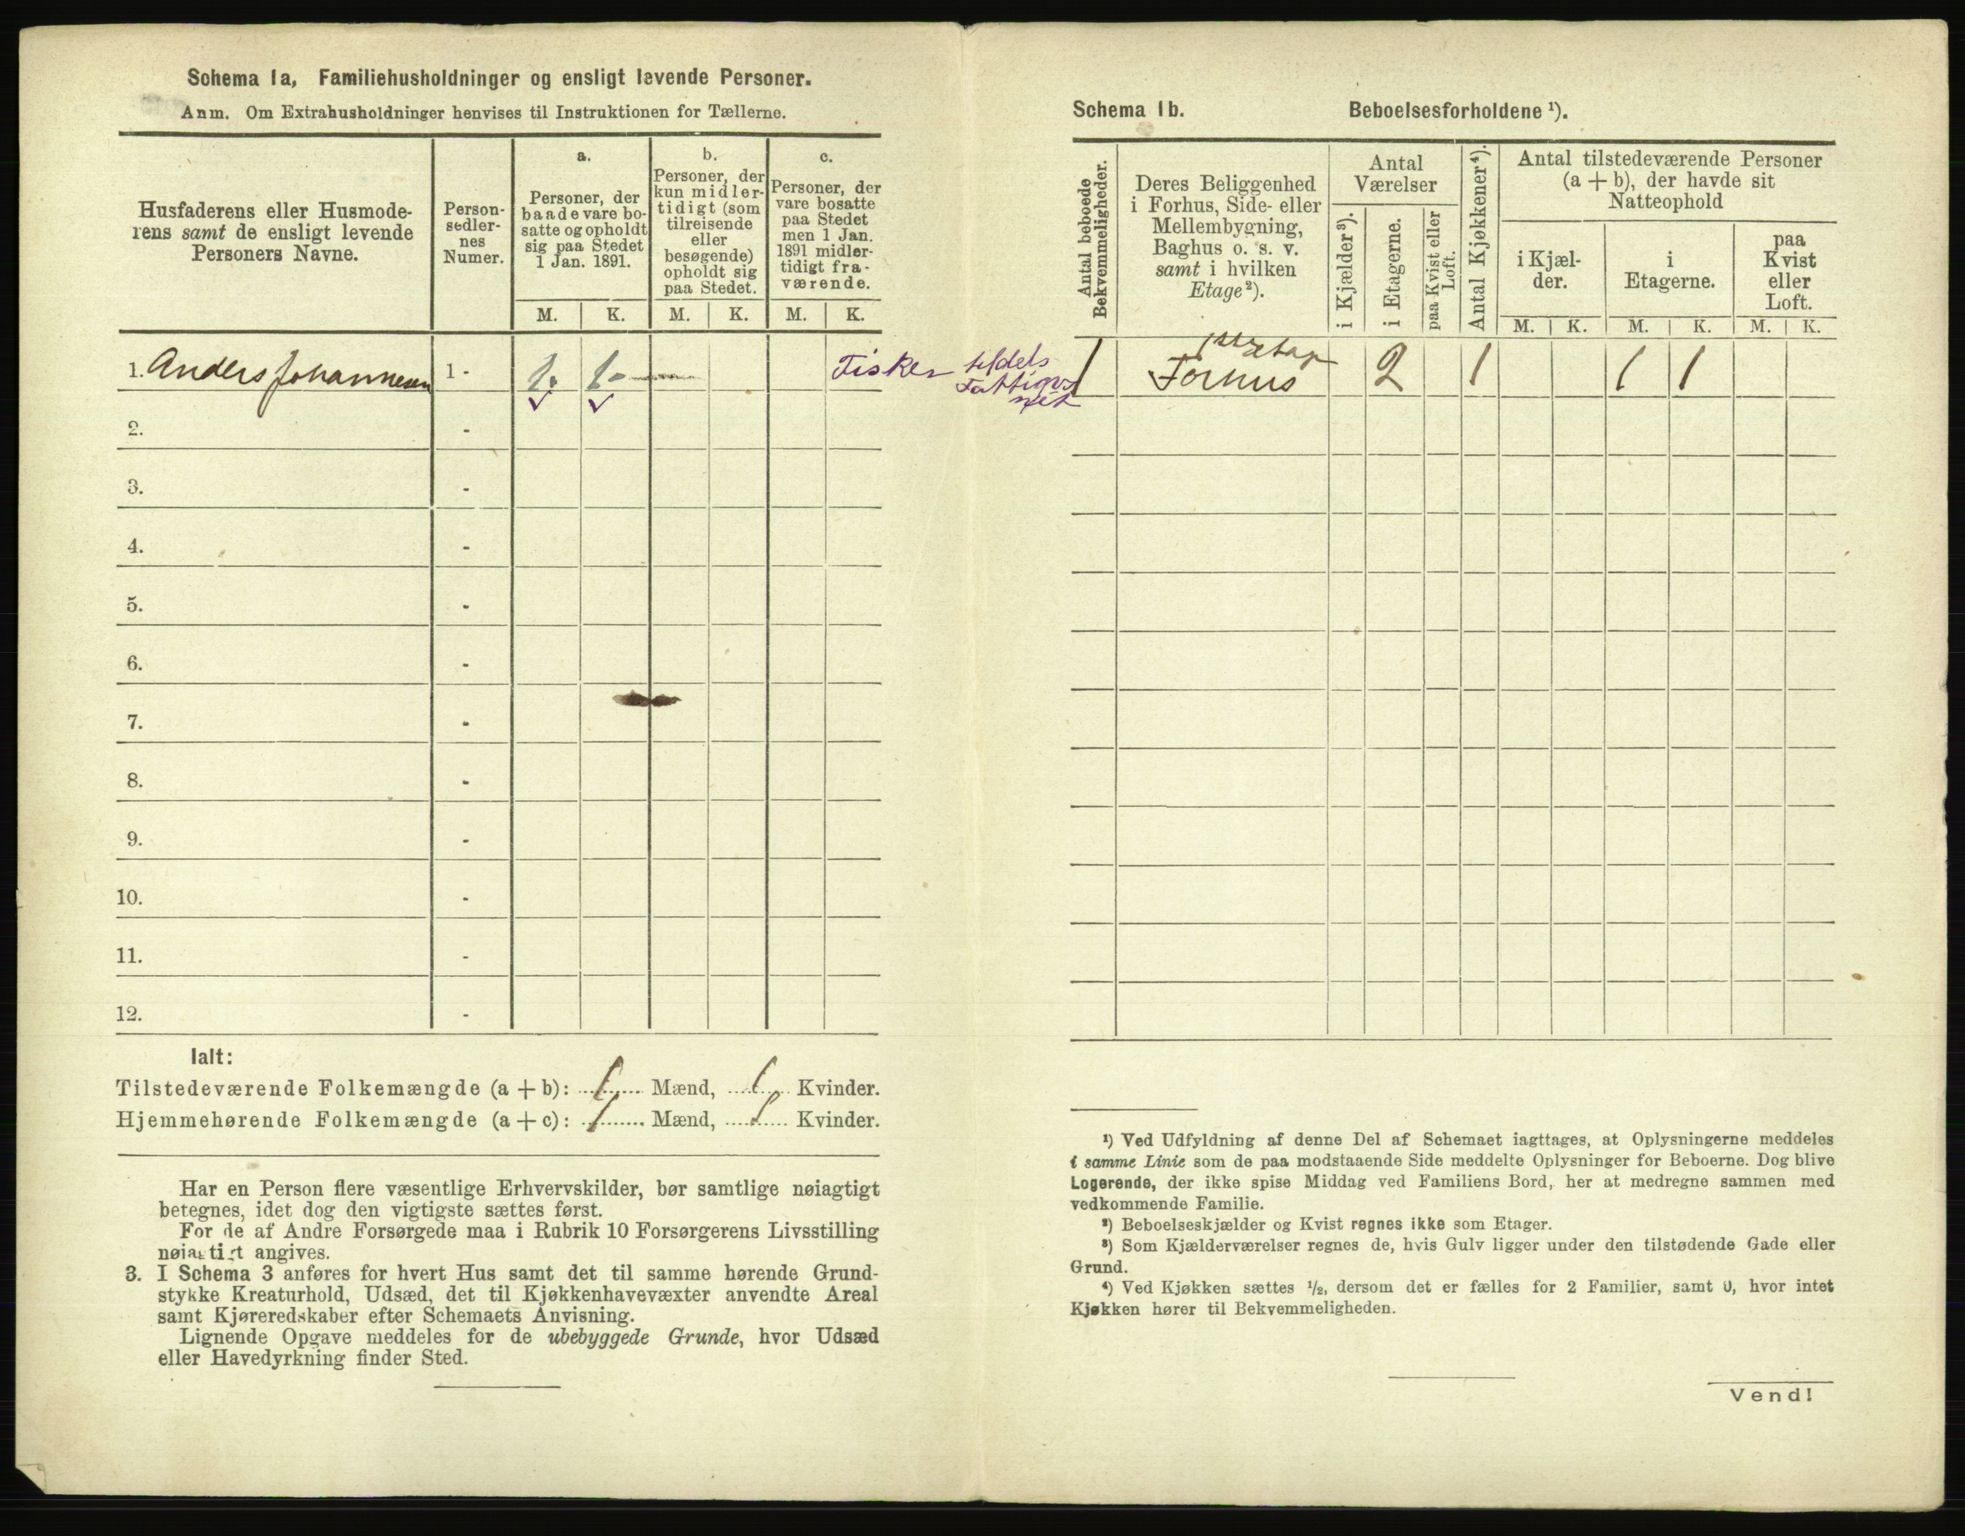 Schema 1a. Familiehusholdninger og ensligt levende Personer.
Anm. Om Extrahusholdninger henvises til Instruktionen for Tællerne.
Husfaderens eller Husmode-
rens samt de ensligt levende
Personers Navne.
Person-
sedler-
nes
Numer.
a.
Personer, der
baade vare bo-
satte og opholdt
sig paa Stedet
1 Jan. 1891.
b.
Personer, der
kun midler-
tidigt (som
tilreisende
eller
besøgende)
opholdt sig
paa Stedet.
c.
Personer, der
vare bosatte
paa Stedet
men 1 Jan.
1891 midler-
tidigt fra-
værende.
M. K. M. K. M. K.
1. Anders Johannesen 1 - 1. 1 - Fisker tildels
Fattigvs
2. -
3. -
4. -
5. -
6. -
7. -
8. -
9. -
10. -
11. -
12. -
Ialt:
Tilstedeværende Folkemængde (a + b): 1 Mænd, 1 Kvinder.
Hjemmehørende Folkemængde (a + c): 1 Mænd, 1 Kvinder.
Har en Person flere væsentlige Erhvervskilder, bør samtlige nøiagtigt
betegnes, idet dog den vigtigste sættes først.
For de af Andre Forsørgede maa i Rubrik 10 Forsørgerens Livsstilling
nøiagtigt angives.
3. I Schema 3 anføres for hvert Hus samt det til samme hørende Grund-
stykke Kreaturhold, Udsæd, det til Kjøkkenhavevæxter anvendte Areal
samt Kjøreredskaber efter Schemaets Anvisning.
Lignende Opgave meddeles for de ubebyggede Grunde, hvor Udsæd
eller Havedyrkning finder Sted.
Schema 1b. Beboelsesforholdene ¹).
Antal beboede
Bekvemmeligheder.
Deres Beliggenhed
i Forhus, Side- eller
Mellembygning,
Baghus o. s. v.
samt i hvilken
Etage²).
Antal
Værelser
i Kjælder³).
i Etagerne.
paa Kvist eller
Loft.
Antal Kjøkkener⁴).
Antal tilstedeværende Personer
(a + b), der havde sit
Natteophold
i Kjæl-
der.
i
Etagerne.
paa
Kvist
eller
Loft.
M. K. M. K. M. K.
1 Forhus 1ste etage 2 1 1 1
¹) Ved Udfyldning af denne Del af Schemaet iagttages, at Oplysningerne meddeles
i samme Linie som de paa modstaaende Side meddelte Oplysninger for Beboerne. Dog blive
Logerende, der ikke spise Middag ved Familiens Bord, her at medregne sammen med
vedkommende Familie.
²) Beboelseskjælder og Kvist regnes ikke som Etager.
³) Som Kjælderværelser regnes de, hvis Gulv ligger under den tilstødende Gade eller
Grund.
⁴) Ved Kjøkken sættes ½, dersom det er fælles for 2 Familier, samt 0, hvor intet
Kjøkken hører til Bekvemmeligheden.
Vend!